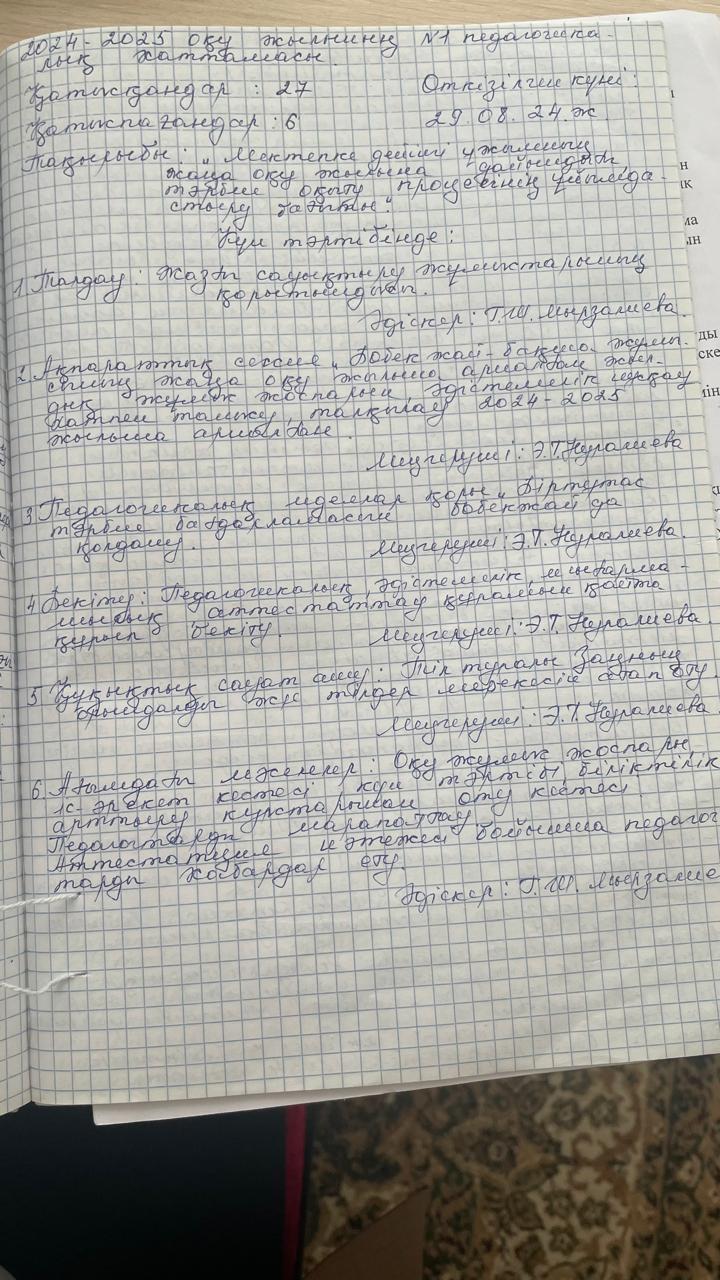 2024-2025 оқу жылының №1 педагогика-
лық хаттамасы.
Қатысқандар : 27 Өткізілген күні:
Қатыспағандар : 6 29.08.24.ж
Тақырыбы: „Мектепке дейінгі ұжымның
жаңа оқу жылына дайындығы
тәрбие оқыту процесінің ұйымда-
стыру бағыты."
Күн тәртібінде:
1. Талдау: Жазғы сауықтыру жұмыстарының
қорытындысы.
Әдіскер: Г.Ш. Мырзалиева.
2. Ақпараттық сессия „Бөбекжай-бақша жұмы-
сының жаңа оқу жылына арналған жыл-
дық жұмыс жоспары, әдістемелік нұсқау
хатпен танысу, талқылау 2024-2025
жылына арналған.
Меңгеруші: Э.Т. Нуралиева
3 Педагогикалық идеялар қоры „Біртұтас
тәрбие бағдарламасын бөбекжайда
қолдану.
Меңгеруші: Э.Т. Нуралиева.
4 Бекіту: Педагогикалық, әдістемелік,
аттестаттау құрамын қайта
құрып бекіту.
Меңгеруші: Э.Т. Нуралиева.
5 Құқықтық сағат аясы: Тіл туралы Заңның
орындалуы және тілдер мерекесін атап өту
Меңгеруші: Э.Т. Нуралиева.
6. Ағымдағы мәселелер: Оқу жұмыс жоспары,
іс-әрекет кестесі, күн тәртібі, біліктілік
арттыру курстарынан өту кестесі,
Педагогтарды марапаттау,
Аттестация нәтежесі бойынша педагог
тарды хабардар ету.
Әдіскер: Г.Ш. Мырзалие